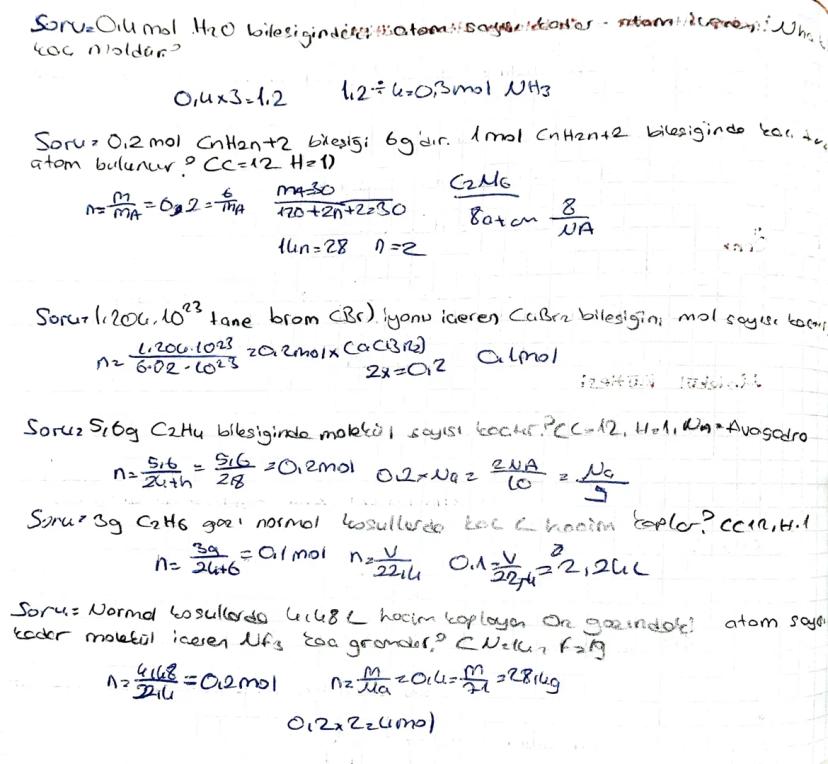 Soru= 0,4 mol H2O bilesigindeki atom sayısı kadar atom iceren
kac moldür?
0,4x3=1.2 1.2÷4=0,3mol NH3
Soru= 0.2 mol CnH2n+2 bilesiği 6g'dır. 1mol CnH2n+2 bilesiginde kac
atom bulunur? (C=12 H=1)
n=m/mA=0,2=6/mA mA=30 C2H6
12n+2n+2=30 8atom 8/NA
14n=28 n=2
Soru= 1.204.10^23 tane brom (Br) iyonu iceren CaBr2 bilesigini mol sayısı kactır
n=1.204.10^23/6.02.10^23=0,2mol x Ca(Br2) 0,1mol
2x=0,2
Soru= 5,6g C2H4 bilesiginde molekül sayısı kactır? (C=12, H=1, Na=Avogadro
n=5,6/24+h=5,6/28=0,2mol 0.2xNa=2NA/10=Na/5
Soru= 3g C2H6 gazı normal kosullarda kac L hacim kaplar? C=12, H=1
n=3g/24+6=0,1mol n=V/22,4 0.1=V/22,4=2,24L
Soru= Normal kosullarda 4,48L hacim kaplayan gazındaki atom sayısı
kadar molekül iceren NF3 kac gramdır? (N=14, F=19
n=4,48/22,4=0,2mol n=m/Ma=0,4=m/71=28,4g
0,2x2=4mol